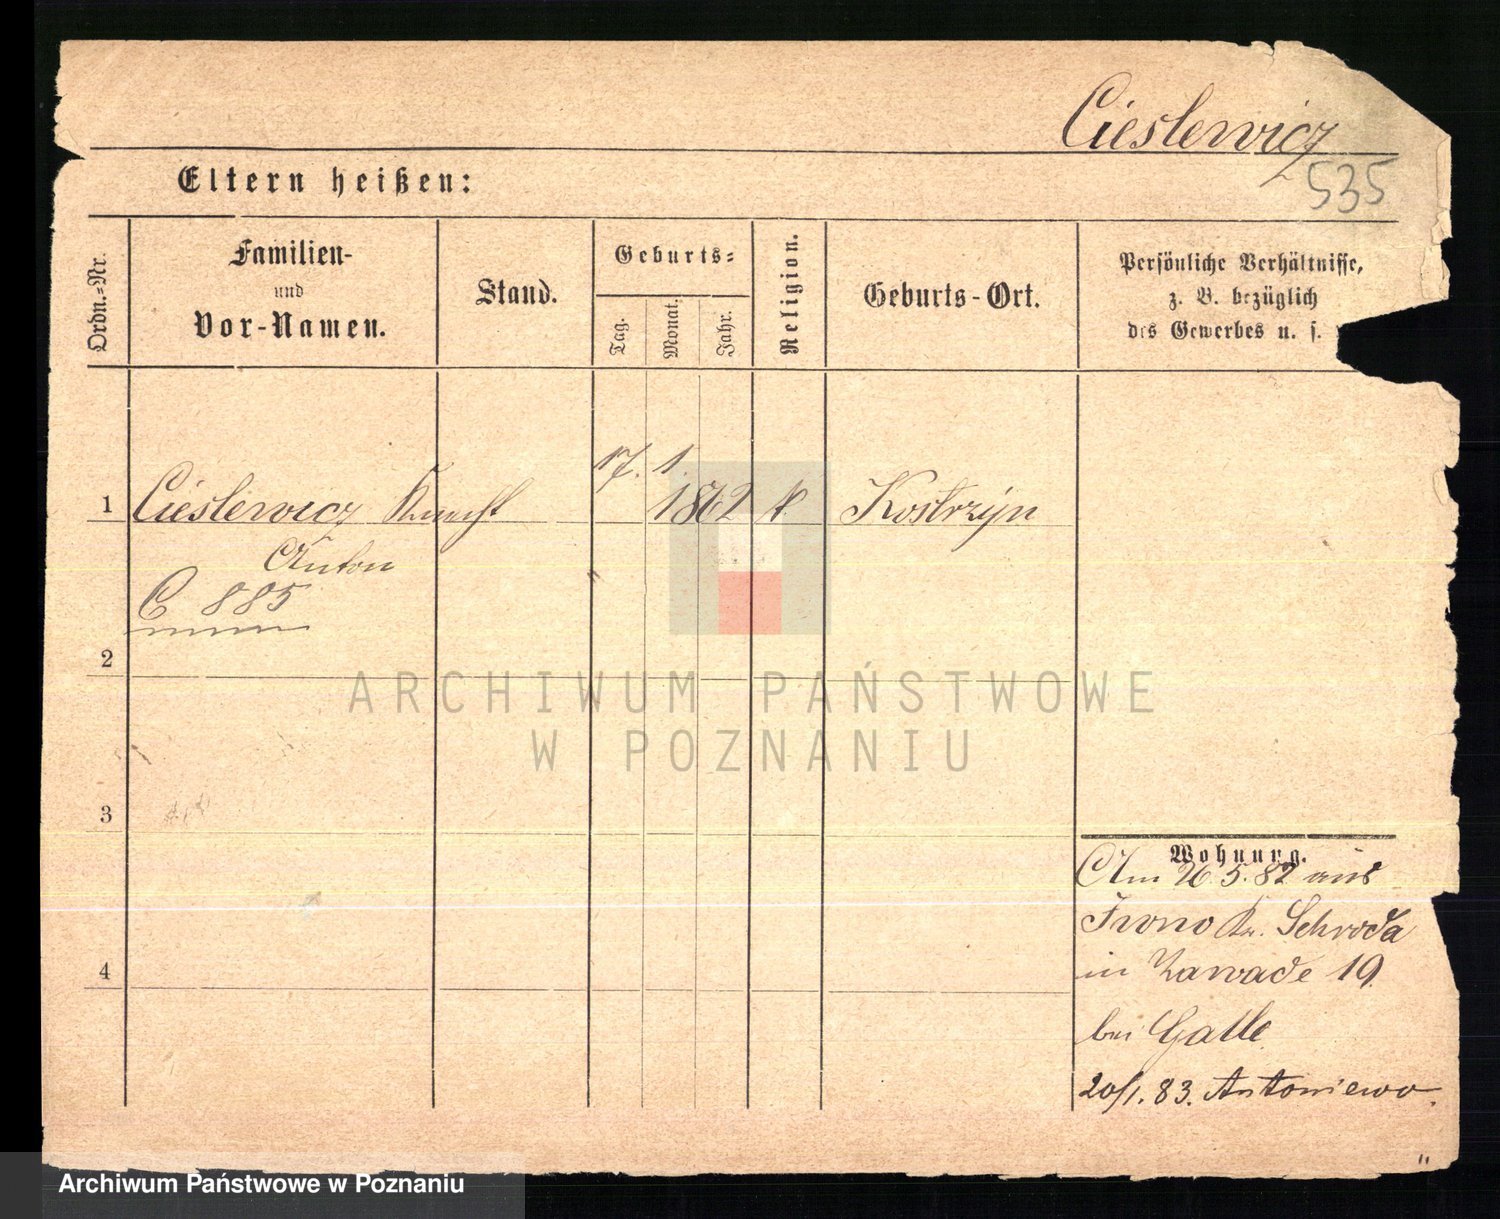 Cieslewicz
535
Eltern heißen:
Ordn.-Nr.
Familien-
und
Vor-Namen.
Stand.
Geburts-
Tag.
Monat.
Jahr.
Religion.
Geburts-Ort.
Persönliche Verhältnisse,
z. B. bezüglich
des Gewerbes u. s.
17. 1.
1 Cieslewicz Knecht 1862 k Kostrzyn
Anton
C 885
2
3
4
Wohnung.
Am 26.5.82 aus
Iwno Kr. Schroda
in Zawade 19
bei Galle
20/1. 83. Antoniewo.
ARCHIWUM PAŃSTWOWE
W POZNANIU
Archiwum Państwowe w Poznaniu